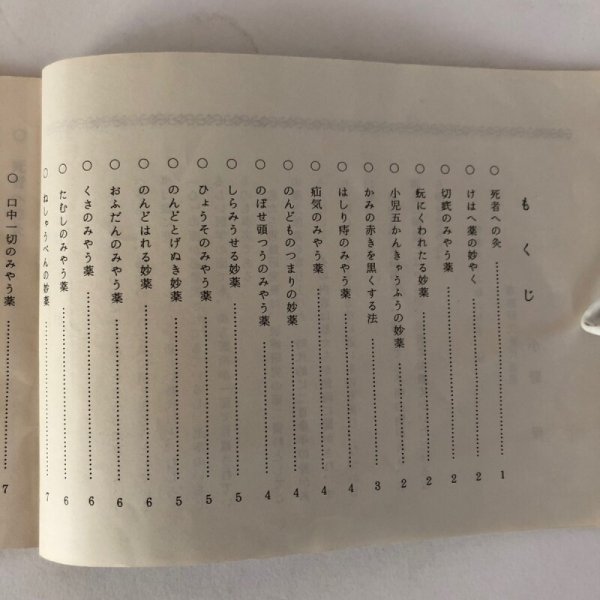 もくじ
○ 死者への灸 1
○ けはへ薬の妙やく 2
○ 切疵のみやう薬 2
○ にくわれたる妙薬 2
○ 小児五かんきゅうふうの妙薬 2
○ かみの赤きを黒くする法 3
○ はしり痔のみやう薬 4
○ 疝気のみやう薬 4
○ のんどものつまりの妙薬 4
○ のぼせ頭つうのみやう薬 4
○ しらみうせる妙薬 5
○ ひょうそのみやう薬 5
○ のんどとげぬき妙薬 5
○ のんどはれる妙薬 6
○ おふだんのみやう薬 6
○ くさのみやう薬 6
○ たむしのみやう薬 6
○ ねしゅうべんの妙薬 7
○ 口中一切のみやう薬 7